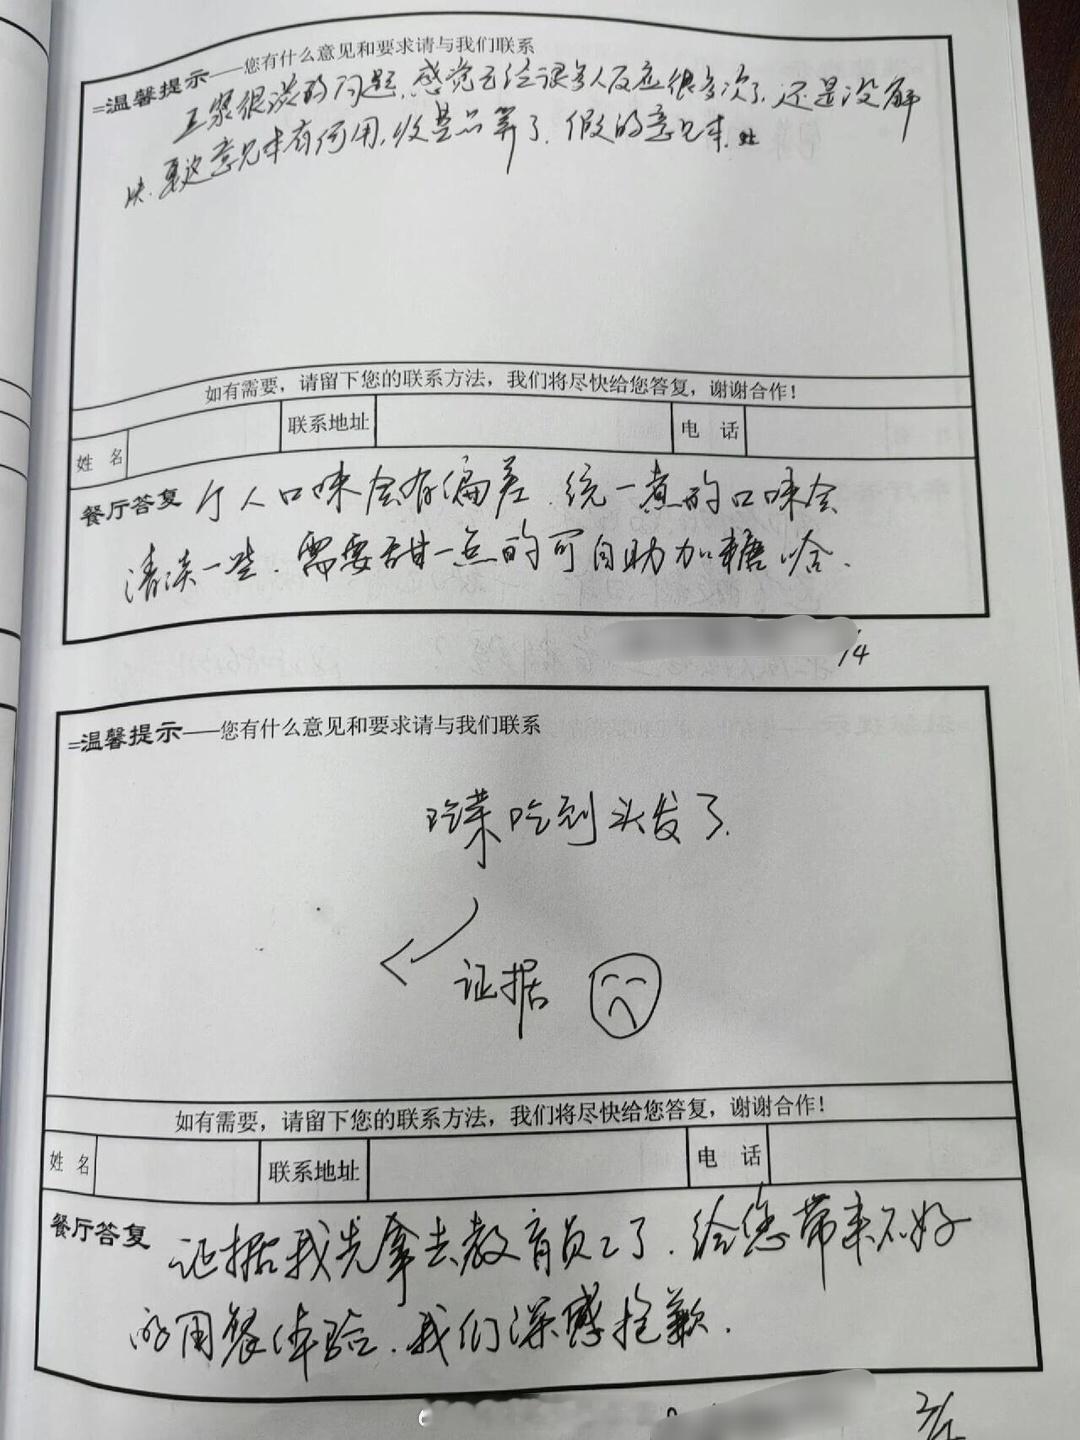 =温馨提示——您有什么意见和要求请与我们联系
豆浆很淡的问题,感觉已经很多人反应很多次了,还是没解
决.要这意见本有何用,收差品算了.假的意见本.
如有需要，请留下您的联系方法，我们将尽快给您答复，谢谢合作！
姓 名 联系地址 电 话
餐厅答复 个人口味会有偏差.统一煮的口味会
清淡一些.需要甜一点的可自助加糖哈.
/4
=温馨提示——您有什么意见和要求请与我们联系
吃菜吃到头发了.
证据
如有需要，请留下您的联系方法，我们将尽快给您答复，谢谢合作！
姓 名 联系地址 电 话
餐厅答复 证据我先拿去教育员工了.给您带来不好
的用餐体验.我们深感抱歉.